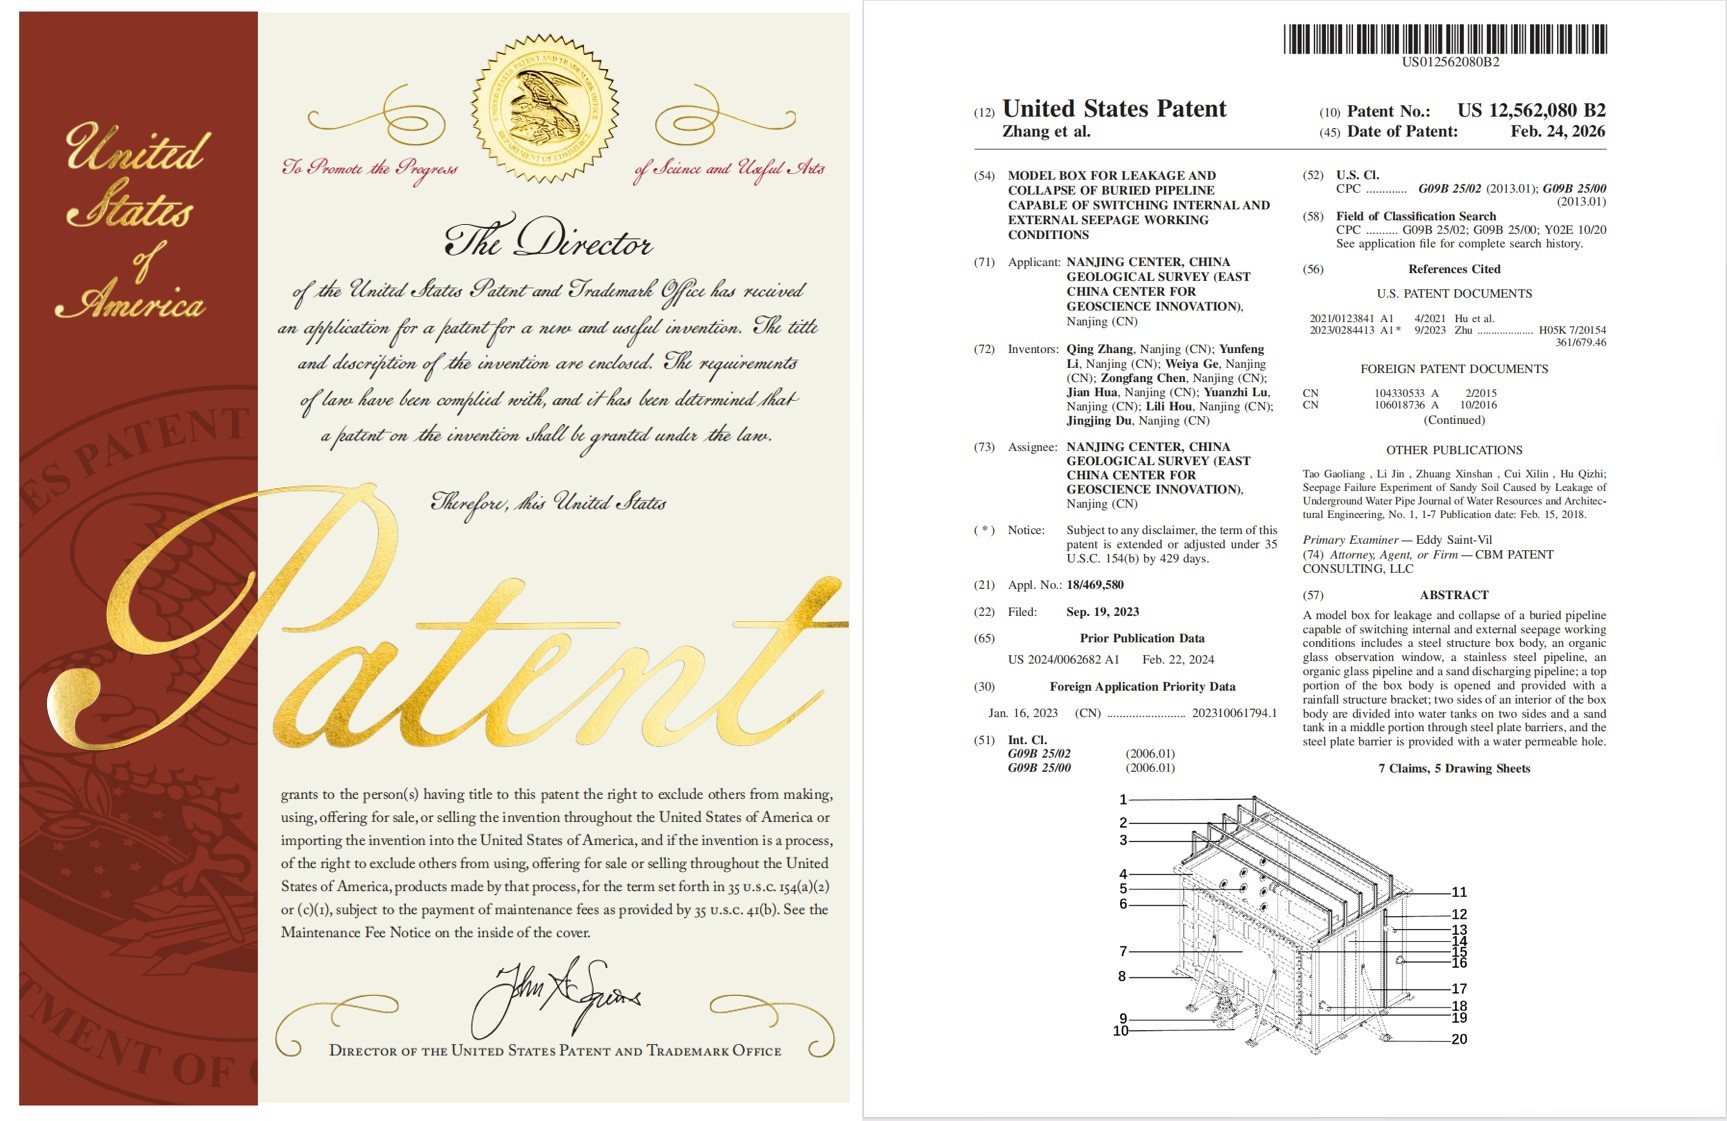 United
States
of
America
To Promote the Progress
of Science and Useful Arts
The Director
of the United States Patent and Trademark Office has received
an application for a patent for a new and useful invention. The title
and description of the invention are enclosed. The requirements
of law have been complied with, and it has been determined that
a patent on the invention shall be granted under the law.
Therefore, this United States
Patent
grants to the person(s) having title to this patent the right to exclude others from making,
using, offering for sale, or selling the invention throughout the United States of America or
importing the invention into the United States of America, and if the invention is a process,
of the right to exclude others from using, offering for sale or selling throughout the United
States of America, products made by that process, for the term set forth in 35 U.S.C. 154(a)(2)
or (c)(1), subject to the payment of maintenance fees as provided by 35 U.S.C. 41(b). See the
Maintenance Fee Notice on the inside of the cover.
DIRECTOR OF THE UNITED STATES PATENT AND TRADEMARK OFFICE
US012562080B2
(12) United States Patent
Zhang et al.
(10) Patent No.: US 12,562,080 B2
(45) Date of Patent: Feb. 24, 2026
(54) MODEL BOX FOR LEAKAGE AND
COLLAPSE OF BURIED PIPELINE
CAPABLE OF SWITCHING INTERNAL AND
EXTERNAL SEEPAGE WORKING
CONDITIONS
(71) Applicant: NANJING CENTER, CHINA
GEOLOGICAL SURVEY (EAST
CHINA CENTER FOR
GEOSCIENCE INNOVATION),
Nanjing (CN)
(72) Inventors: Qing Zhang, Nanjing (CN); Yunfeng
Li, Nanjing (CN); Weiya Ge, Nanjing
(CN); Zongfang Chen, Nanjing (CN);
Jian Hua, Nanjing (CN); Yuanzhi Lu,
Nanjing (CN); Lili Hou, Nanjing (CN);
Jingjing Du, Nanjing (CN)
(73) Assignee: NANJING CENTER, CHINA
GEOLOGICAL SURVEY (EAST
CHINA CENTER FOR
GEOSCIENCE INNOVATION),
Nanjing (CN)
( * ) Notice: Subject to any disclaimer, the term of this
patent is extended or adjusted under 35
U.S.C. 154(b) by 429 days.
(21) Appl. No.: 18/469,580
(22) Filed: Sep. 19, 2023
(65) Prior Publication Data
US 2024/0062682 A1 Feb. 22, 2024
(30) Foreign Application Priority Data
Jan. 16, 2023 (CN) .......................... 202310061794.1
(51) Int. Cl.
G09B 25/02 (2006.01)
G09B 25/00 (2006.01)
(52) U.S. Cl.
CPC ............. G09B 25/02 (2013.01); G09B 25/00
(2013.01)
(58) Field of Classification Search
CPC .......... G09B 25/02; G09B 25/00; Y02E 10/20
See application file for complete search history.
(56) References Cited
U.S. PATENT DOCUMENTS
2021/0123841 A1 4/2021 Hu et al.
2023/0284413 A1* 9/2023 Zhu .................... H05K 7/20154
361/679.46
FOREIGN PATENT DOCUMENTS
CN 104330533 A 2/2015
CN 106018736 A 10/2016
(Continued)
OTHER PUBLICATIONS
Tao Gaoliang , Li Jin , Zhuang Xinshan , Cui Xilin , Hu Qizhi;
Seepage Failure Experiment of Sandy Soil Caused by Leakage of
Underground Water Pipe Journal of Water Resources and Architec-
tural Engineering, No. 1, 1-7 Publication date: Feb. 15, 2018.
Primary Examiner — Eddy Saint-Vil
(74) Attorney, Agent, or Firm — CBM PATENT
CONSULTING, LLC
(57) ABSTRACT
A model box for leakage and collapse of a buried pipeline
capable of switching internal and external seepage working
conditions includes a steel structure box body, an organic
glass observation window, a stainless steel pipeline, an
organic glass pipeline and a sand discharging pipeline; a top
portion of the box body is opened and provided with a
rainfall structure bracket; two sides of an interior of the box
body are divided into water tanks on two sides and a sand
tank in a middle portion through steel plate barriers, and the
steel plate barrier is provided with a water permeable hole.
7 Claims, 5 Drawing Sheets
1
2
3
4
5
6
7
8
9
10
11
12
13
14
15
16
17
18
19
20